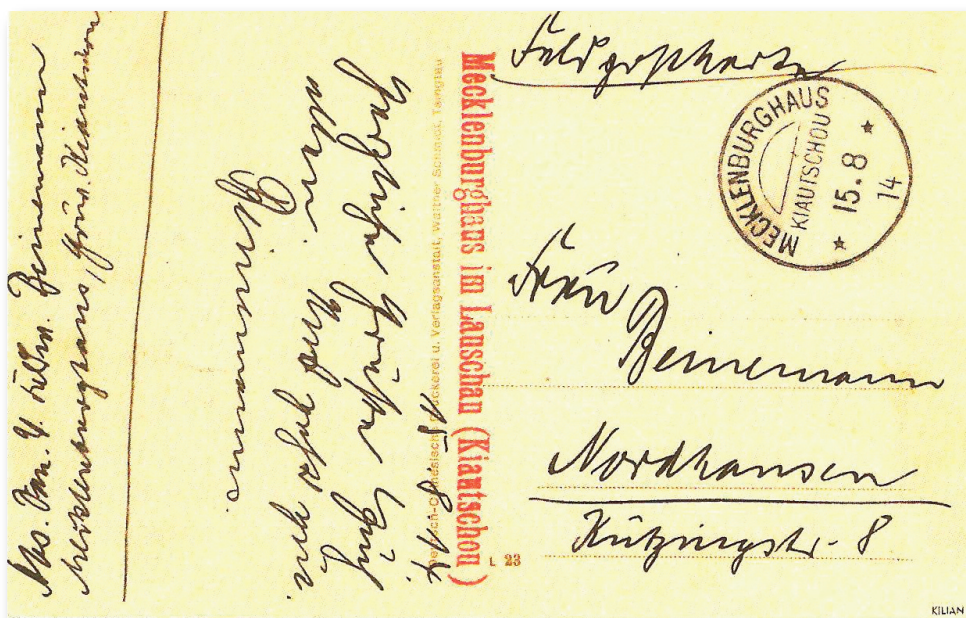 Feldpostkarte
MECKLENBURGHAUS
KIAUTSCHOU
* 15.8 *
14
Frau
Beinemann
Nordhausen
Kützingstr. 8
L 23
Mecklenburghaus in Lauschan (Kiautschou)
Deutsch-Chinesische Druckerei u. Verlagsanstalt, Walther Schmidt, Tsingtau
15.8.14.
Herzliche Grüße Euch
allen.
Beinemann
Beinemann
Mecklenburghaus, Kiautschou
KILIAN